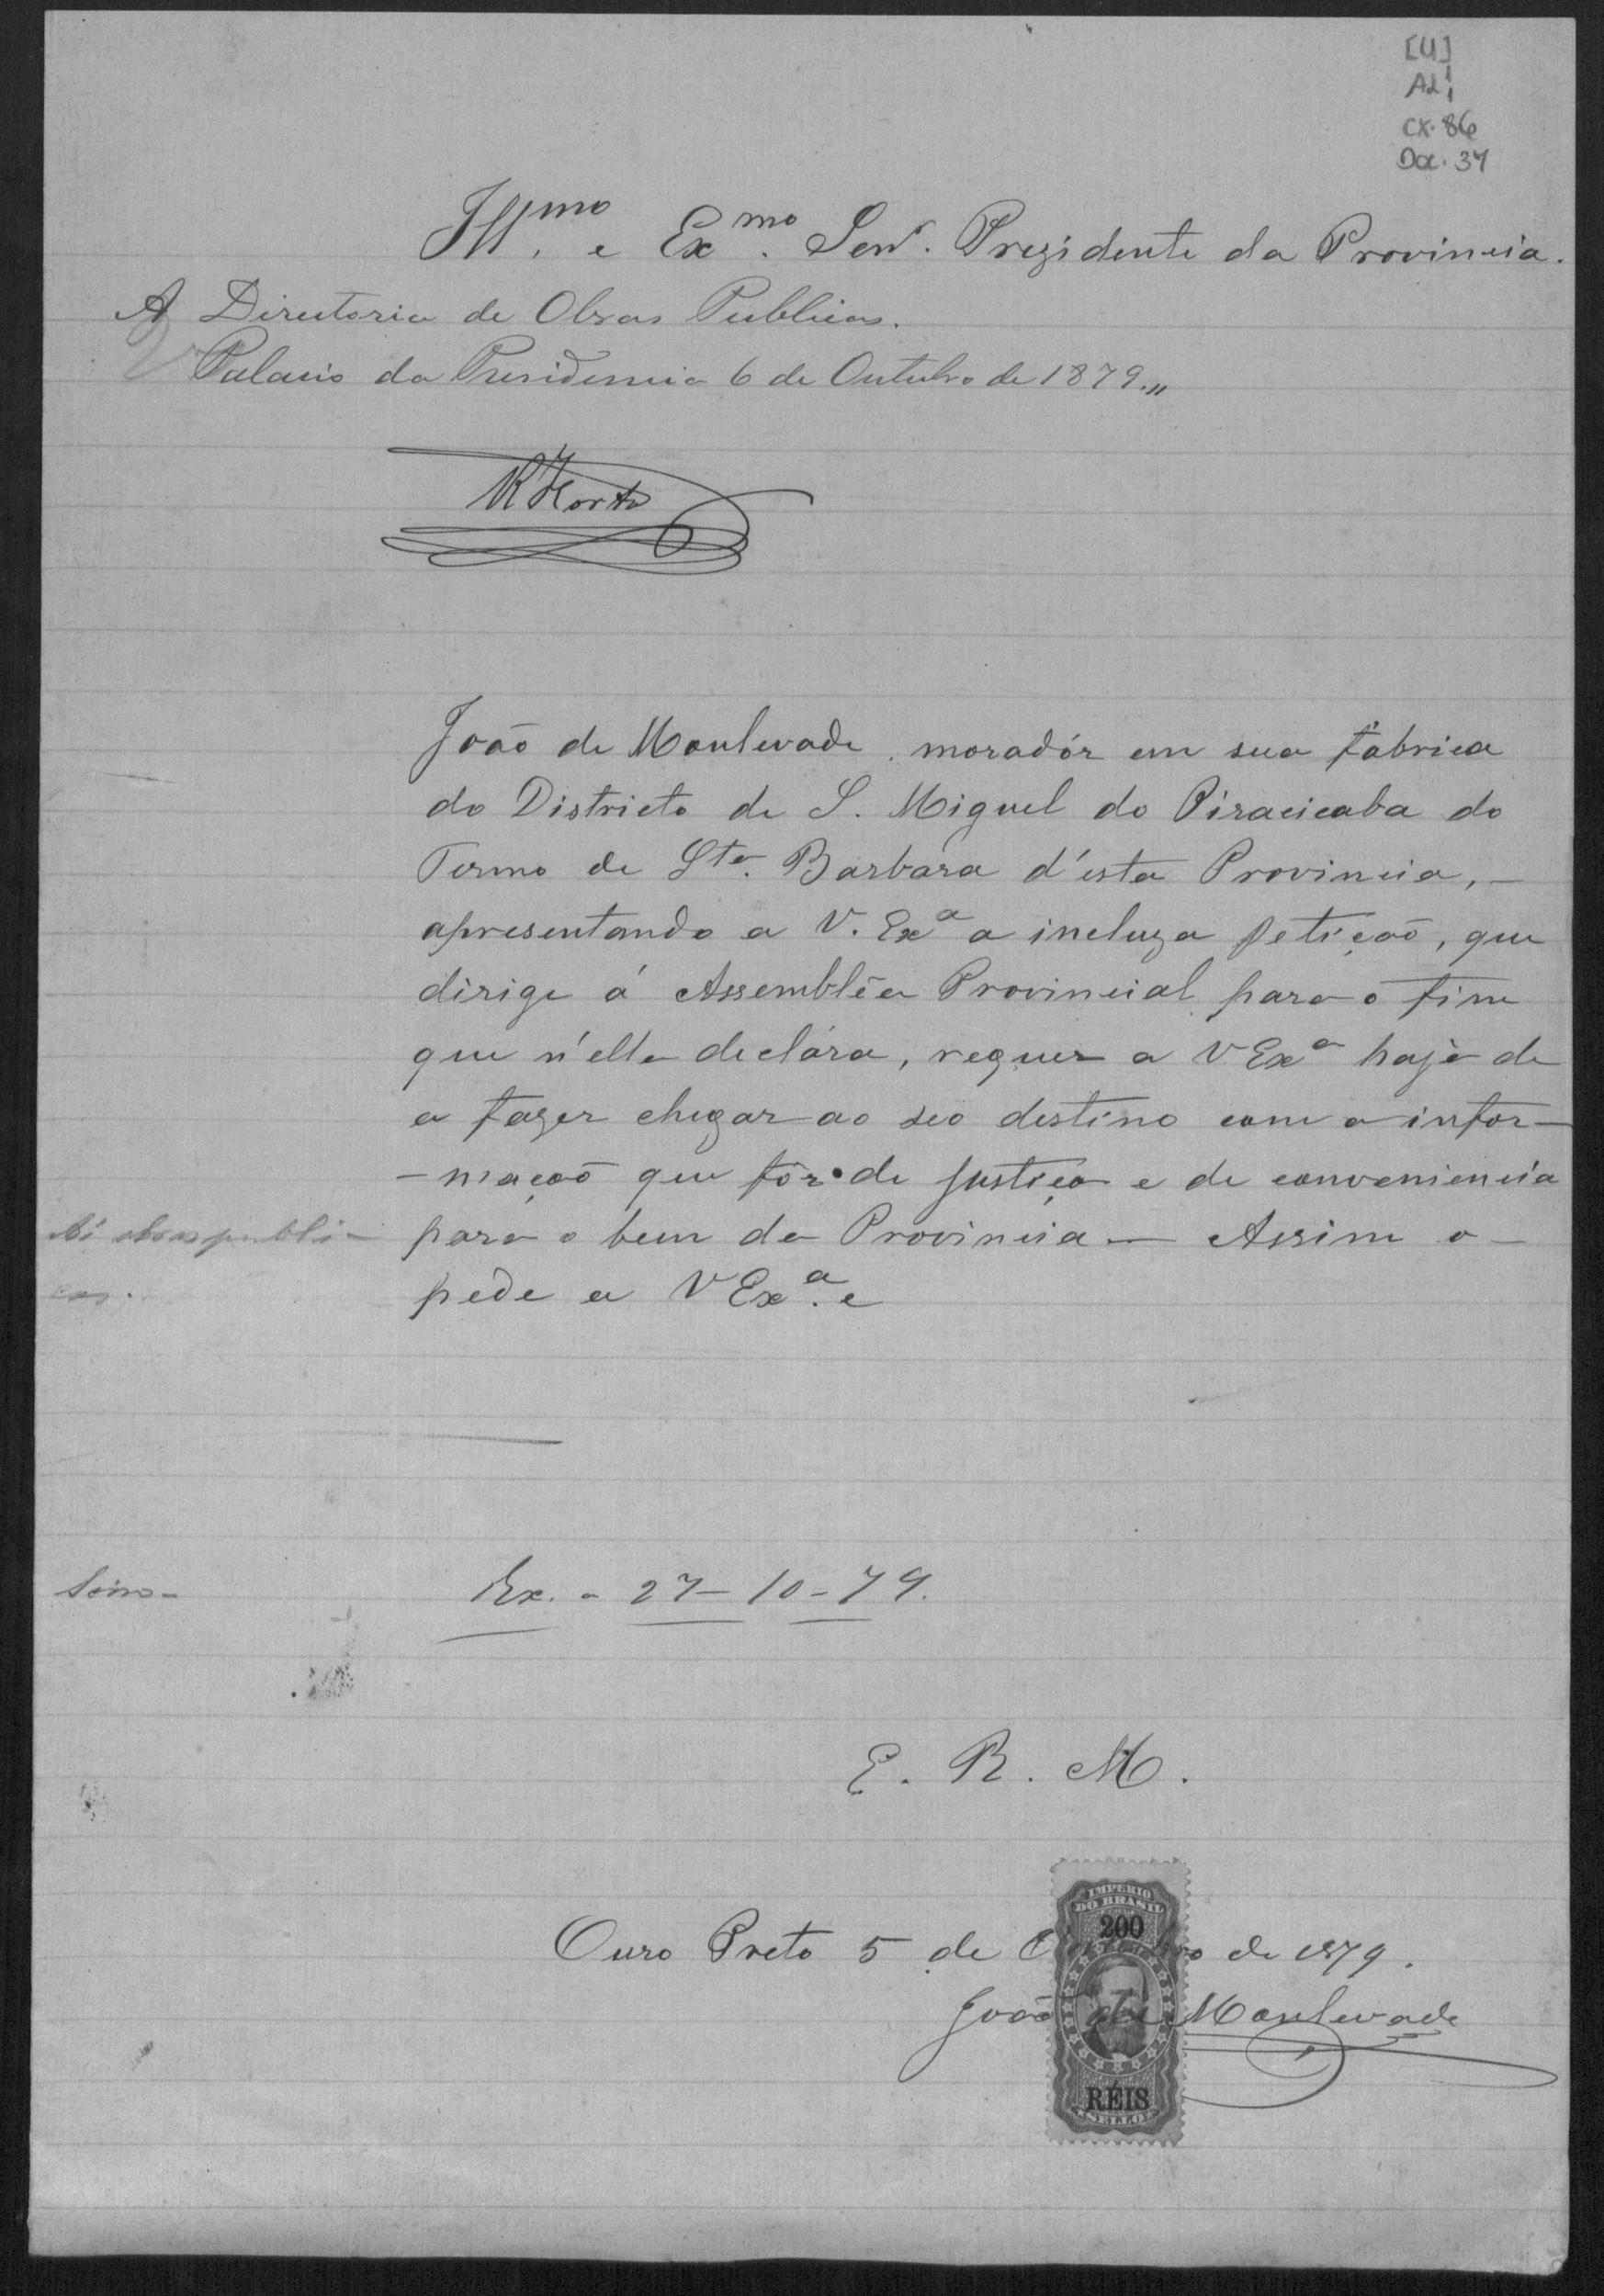 [U]
AL¹
CX. 86
Doc. 37
Ill.mo e Ex.mo Senr. Prezidente da Provincia.
A Directoria de Obras Publicas.
Palacio da Presidencia 6 de Outubro de 1879.„
R Horta
João de Monlevade, moradór em sua fábrica
do Districto de S. Miguel do Piracicaba do
Termo de Sta. Barbara d'ésta Provincia, —
apresentando a V. Exa a incluza petiçaõ, que
dirige á Assemblêa Provincial para o fim
que n'ella declára, requer a V Exa haja de
a fazer chegar ao seo destino com a infor—
—maçaõ que fôr de justiça e de conveniencia
para o bem da Provincia — Assim o —
péde a V Exa. e
Ás obras publi—
cas.
Ex. - 27 — 10 - 79.
E. R. M.
IMPERIO
DO BRASIL
200
Ouro Preto 5 de Outubro de 1879.
João de Monlevade
RÉIS
SELLO